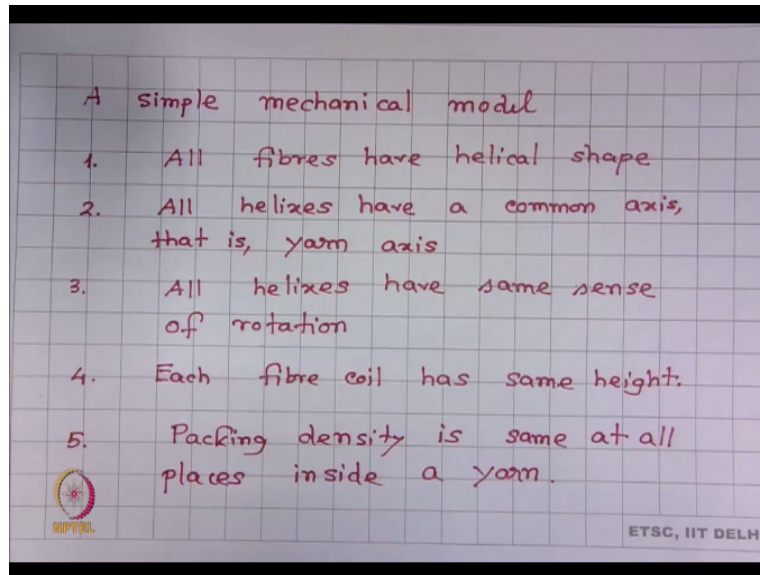 A simple mechanical model
1. All fibres have helical shape
2. All helixes have a common axis,
that is, yarn axis
3. All helixes have same sense
of rotation
4. Each fibre coil has same height.
5. Packing density is same at all
places inside a yarn.
NPTEL
ETSC, IIT DELH